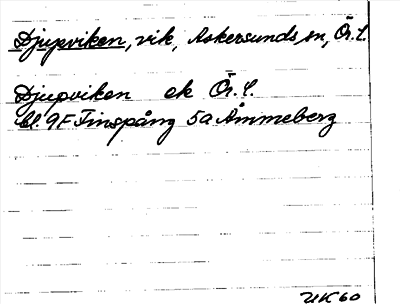 Djupviken, vik, Askersunds sn, Ör. L.
Djupviken ek Ör. L.
bl. 9F Finspång 5a Åmmeberg
UK 60